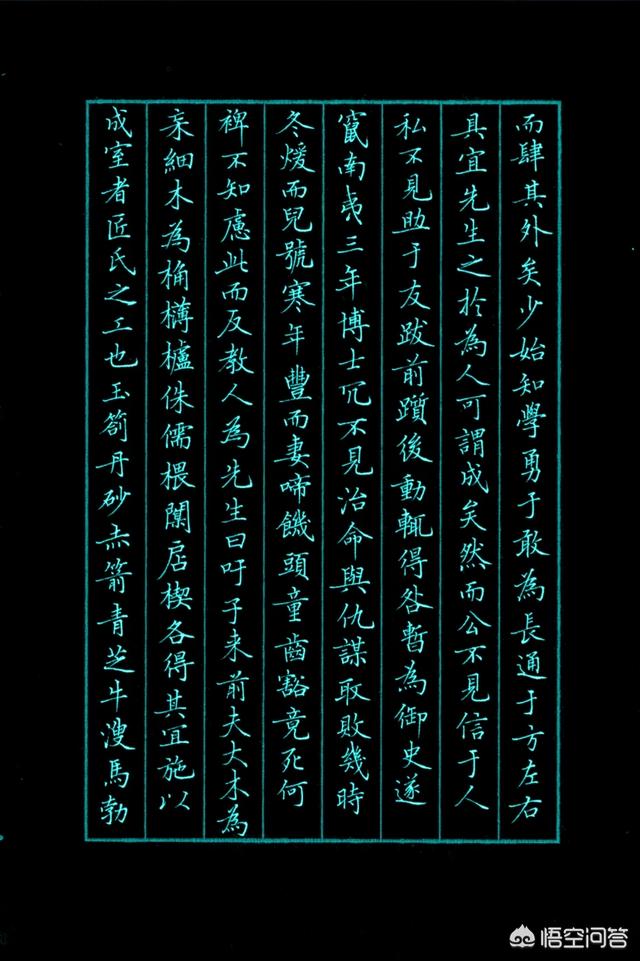 而肆其外矣少始知學勇于敢為長通于方左右
具宜先生之於為人可謂成矣然而公不見信于人
私不見助于友跋前躓後動輒得咎暫為御史遂
竄南夷三年博士冗不見治命與仇謀取敗幾時
冬煖而兒號寒年豐而妻啼饑頭童齒豁竟死何
裨不知慮此而反教人為先生曰吁子来前夫大木為
杗細木為桷欂櫨侏儒椳闑扂楔各得其宜施以
成室者匠氏之工也玉箚丹砂赤箭青芝牛溲馬勃
悟空问答